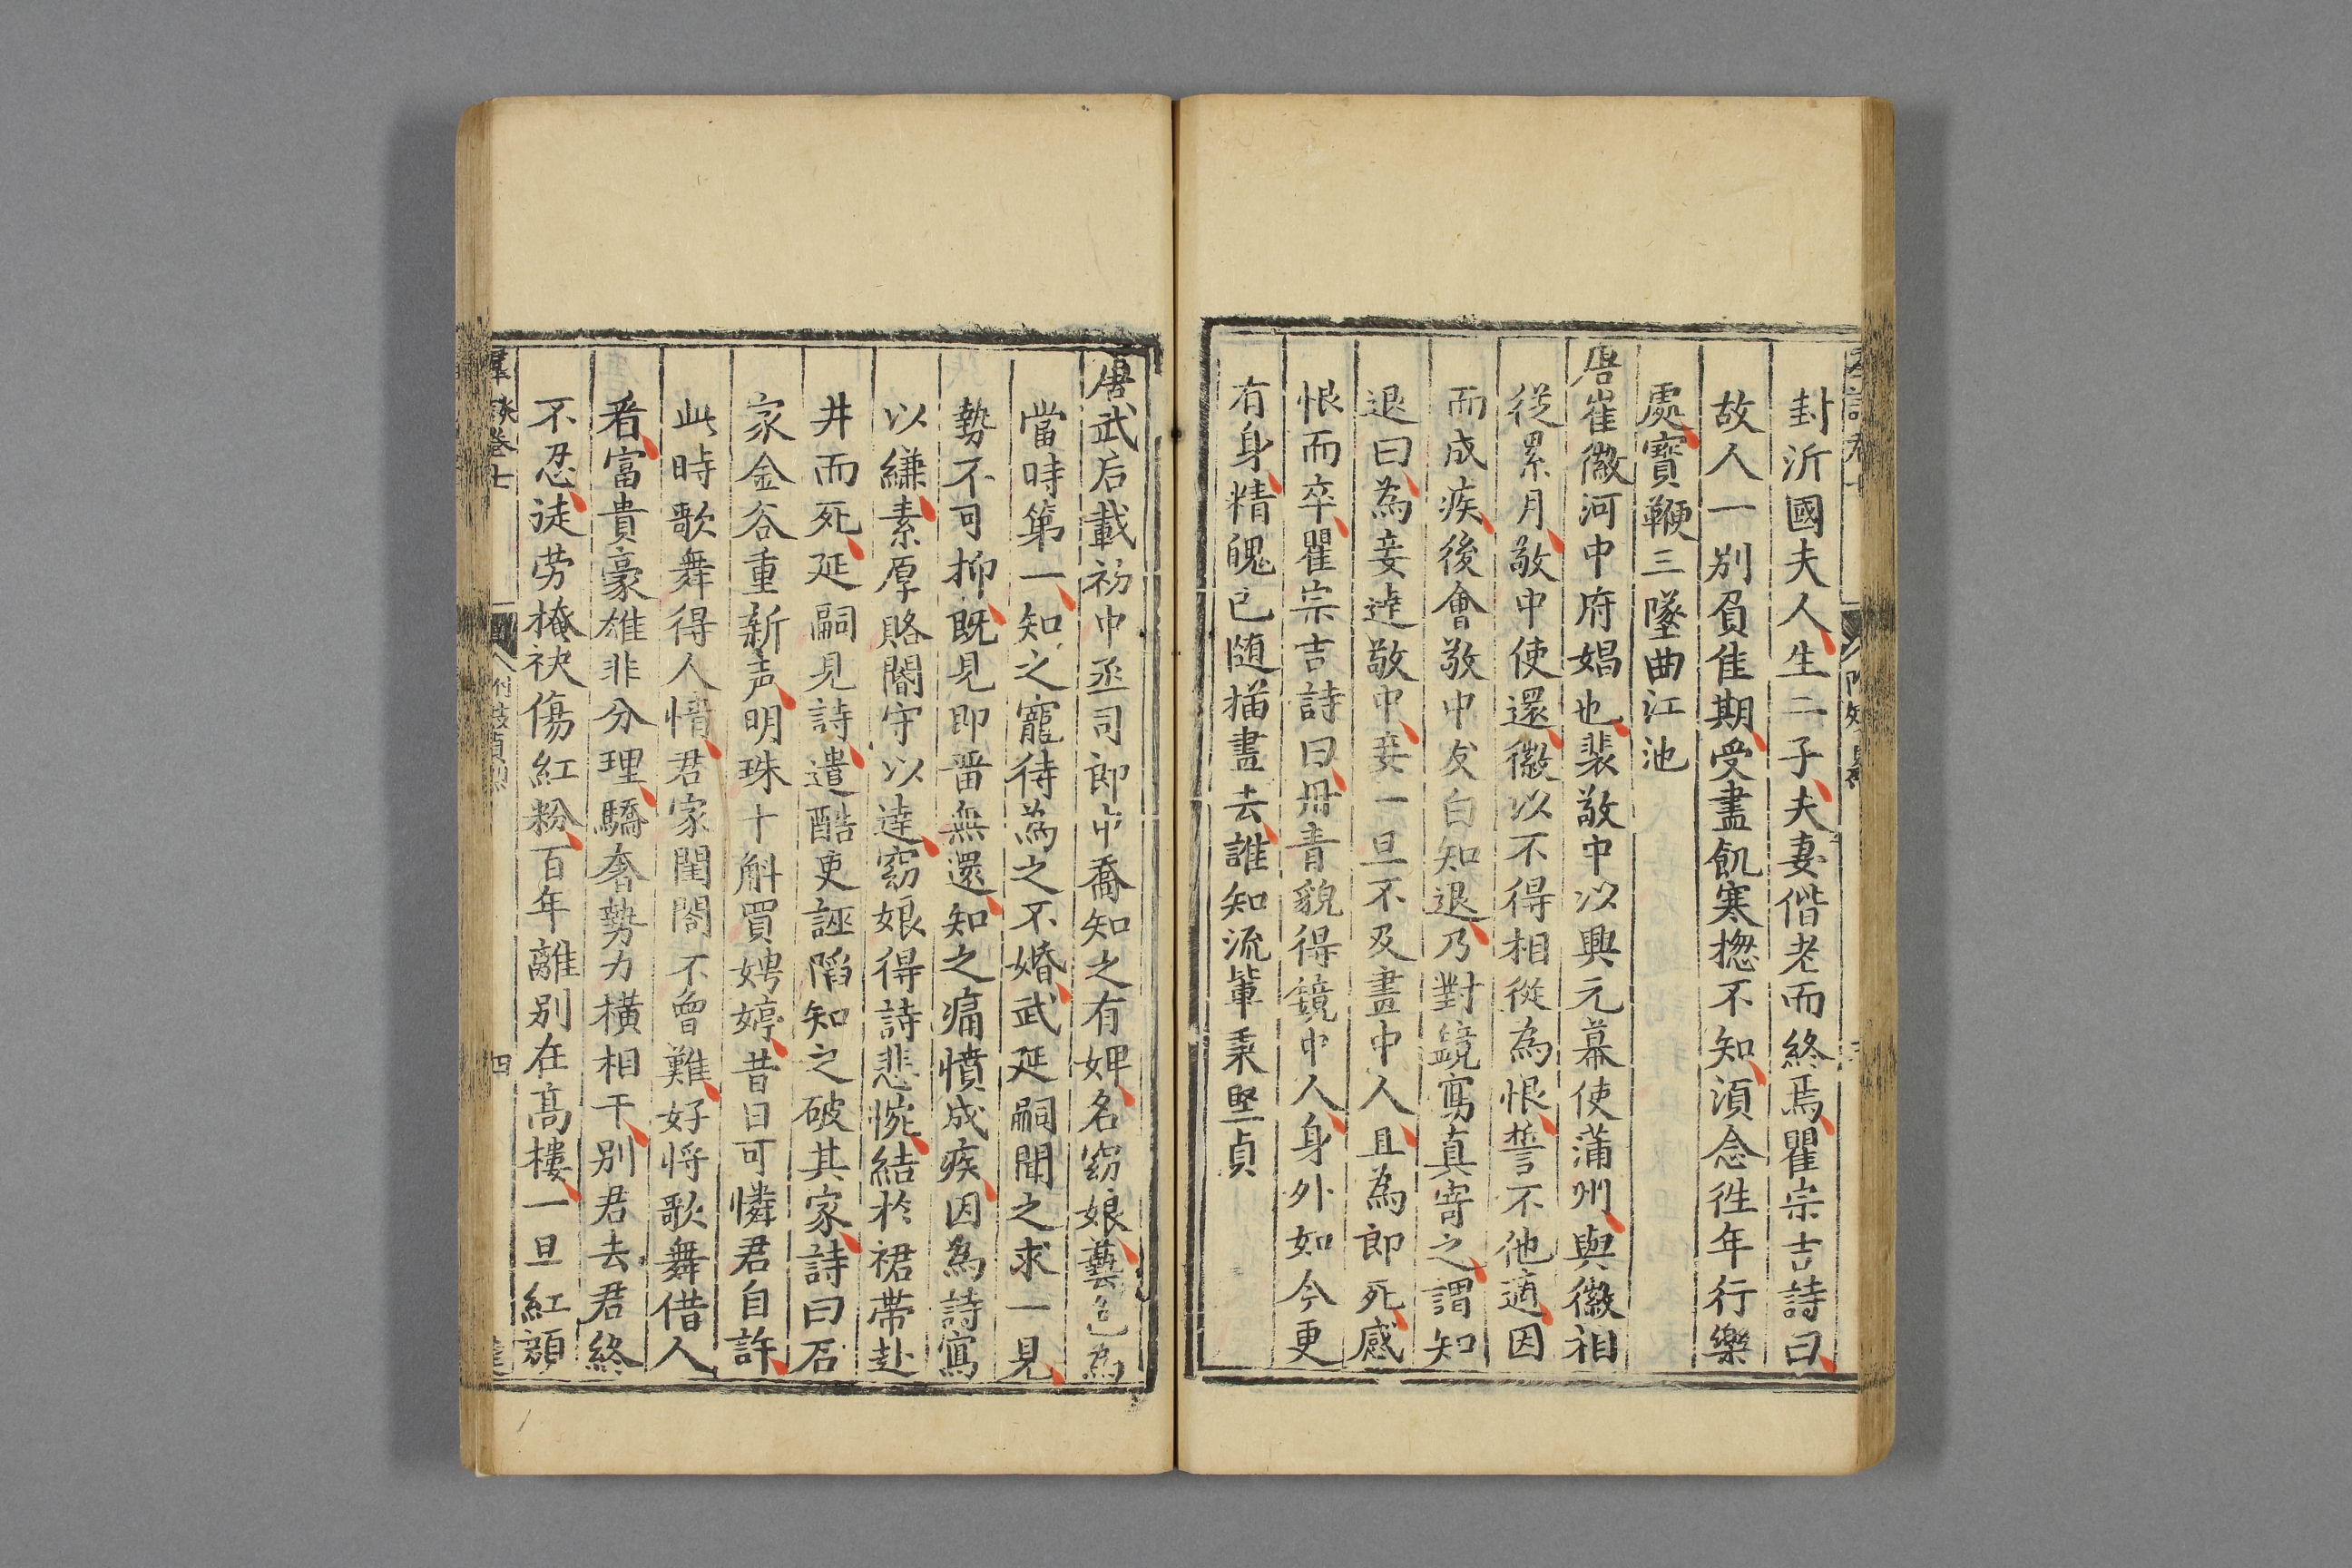 封沂國夫人生二子夫妻偕老而終焉瞿宗吉詩曰
故人一别負佳期受盡飢寒揔不知湏念徃年行樂
處寳鞭三墜曲江池
唐崔徽河中府娼也裴敬中以興元幕使蒲州與徽相
從累月敬中使還徽以不得相從為恨誓不他適因
而成疾後會敬中友白知退乃對鏡寫真寄之謂知
退曰為妾逹敬中妾一旦不及畫中人且為郎死感
恨而卒瞿宗吉詩曰丹青貌得鏡中人身外如今更
有身精魄已随描畫去誰知流軰秉堅貞
唐武后載初中丞司郎中喬知之有婢名窈娘藝色為
當時第一知之寵待為之不婚武延嗣聞之求一見
勢不可抑既見即畱無還知之痛憤成疾因為詩寫
以縑素厚賂閽守以逹窈娘得詩悲惋結於裙帯赴
井而死延嗣見詩遣酷吏誣陷知之破其家詩曰石
家金谷重新声明珠十斛買娉婷昔日可憐君自許
此時歌舞得人情君家閨閤不曾難好将歌舞借人
看富貴豪雄非分理驕奢勢力横相干别君去君終
不忍徒劳掩袂傷紅粉百年離别在髙樓一旦紅顔
卷七
四